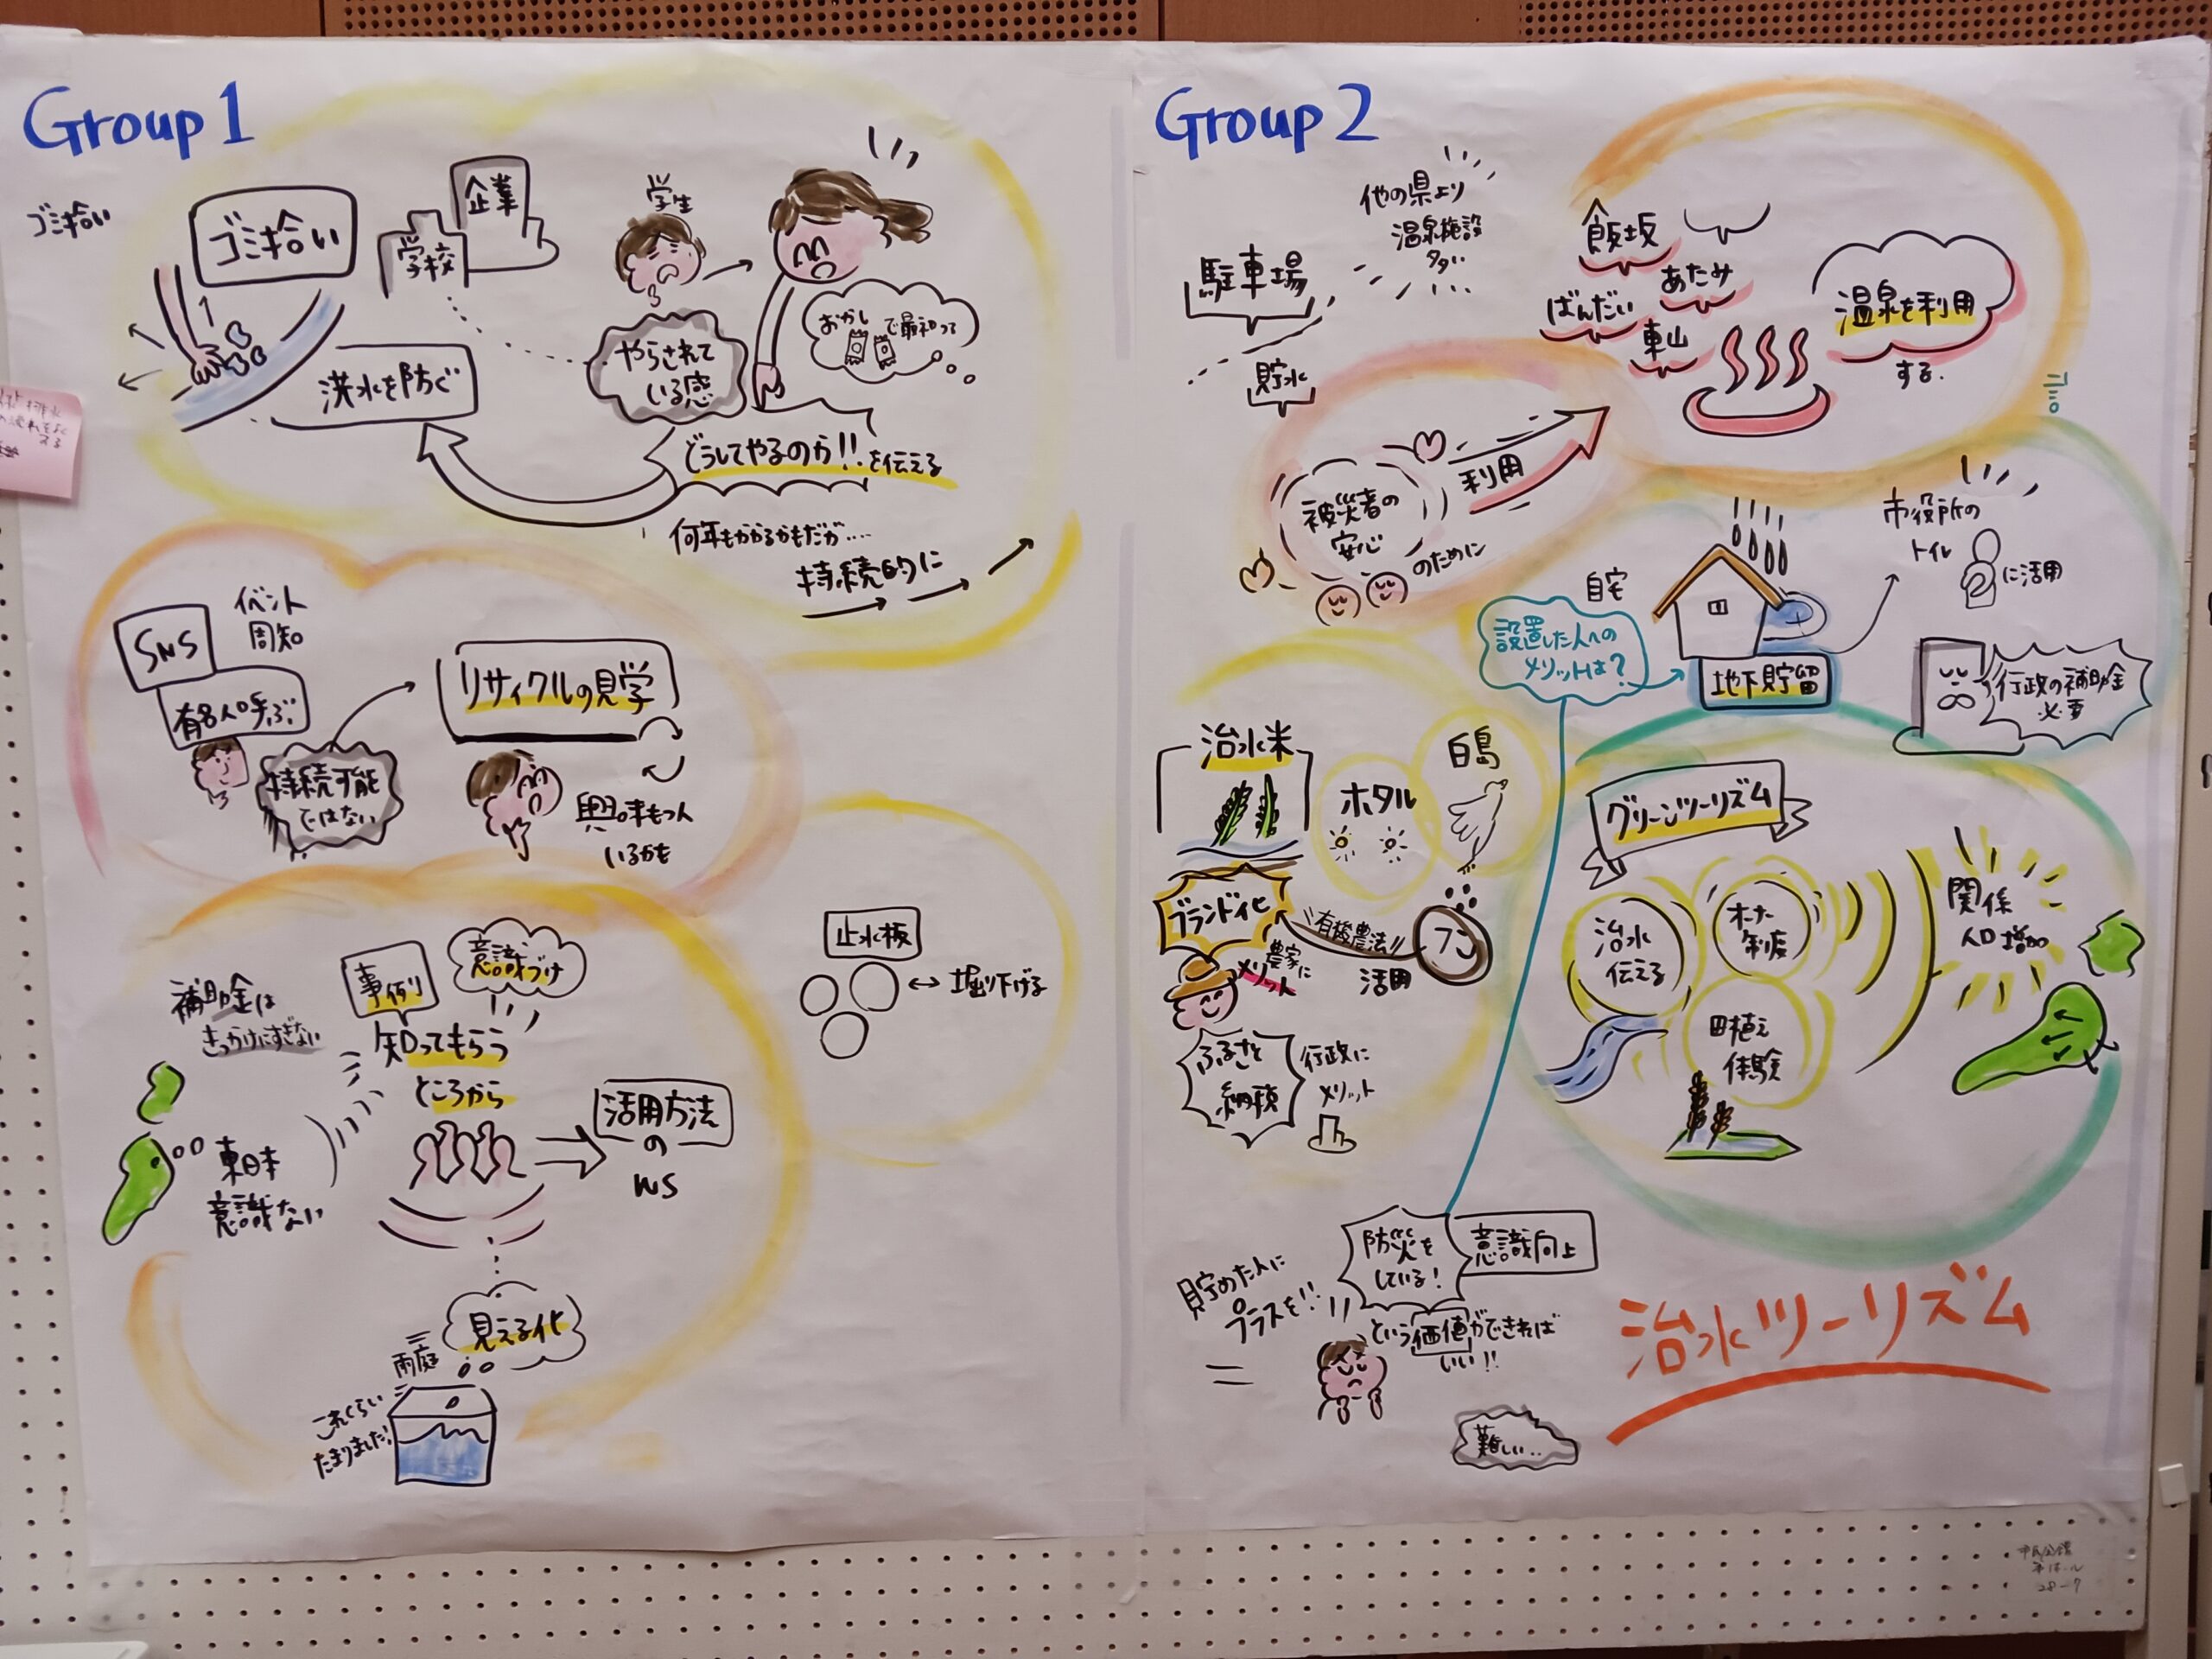 Group 1
ゴミ拾い
ゴミ拾い
学校
企業
学生
洪水を防ぐ
やらされて
いる感
おかし
で最初って
どうしてやるのか!!を伝える
何年もかかるかもだが....
持続的に
SNS
イベント
周知
有名人呼ぶ
持続可能
ではない
リサイクルの見学
興味もつ人
いるかも
補助金は
きっかけにすぎない
事例
意識づけ
知ってもらう
ところから
東日本
意識ない
活用方法
の
WS
見える化
雨庭
これくらい
たまりました!
止水板
堀り下げる
Group 2
駐車場
貯水
他の県より
温泉施設
多い
飯坂
あたみ
ばんだい
東山
温泉を利用
する.
被災者の
安心
のために
利用
自宅
設置した人への
メリットは?
地下貯留
市役所の
トイレ
に活用
行政の補助金
必要
治水米
ホタル
白鳥
ブランド化
有機農法
フン
活用
農家に
メリット
ふるさと
納税
行政に
メリット
グリーンツーリズム
治水
伝える
オーナー
制度
田植え
体験
関係
人口増加
貯めた人に
プラスを!!
防災を
している!
意識向上
という価値ができれば
いい!!
難しい...
治水ツーリズム